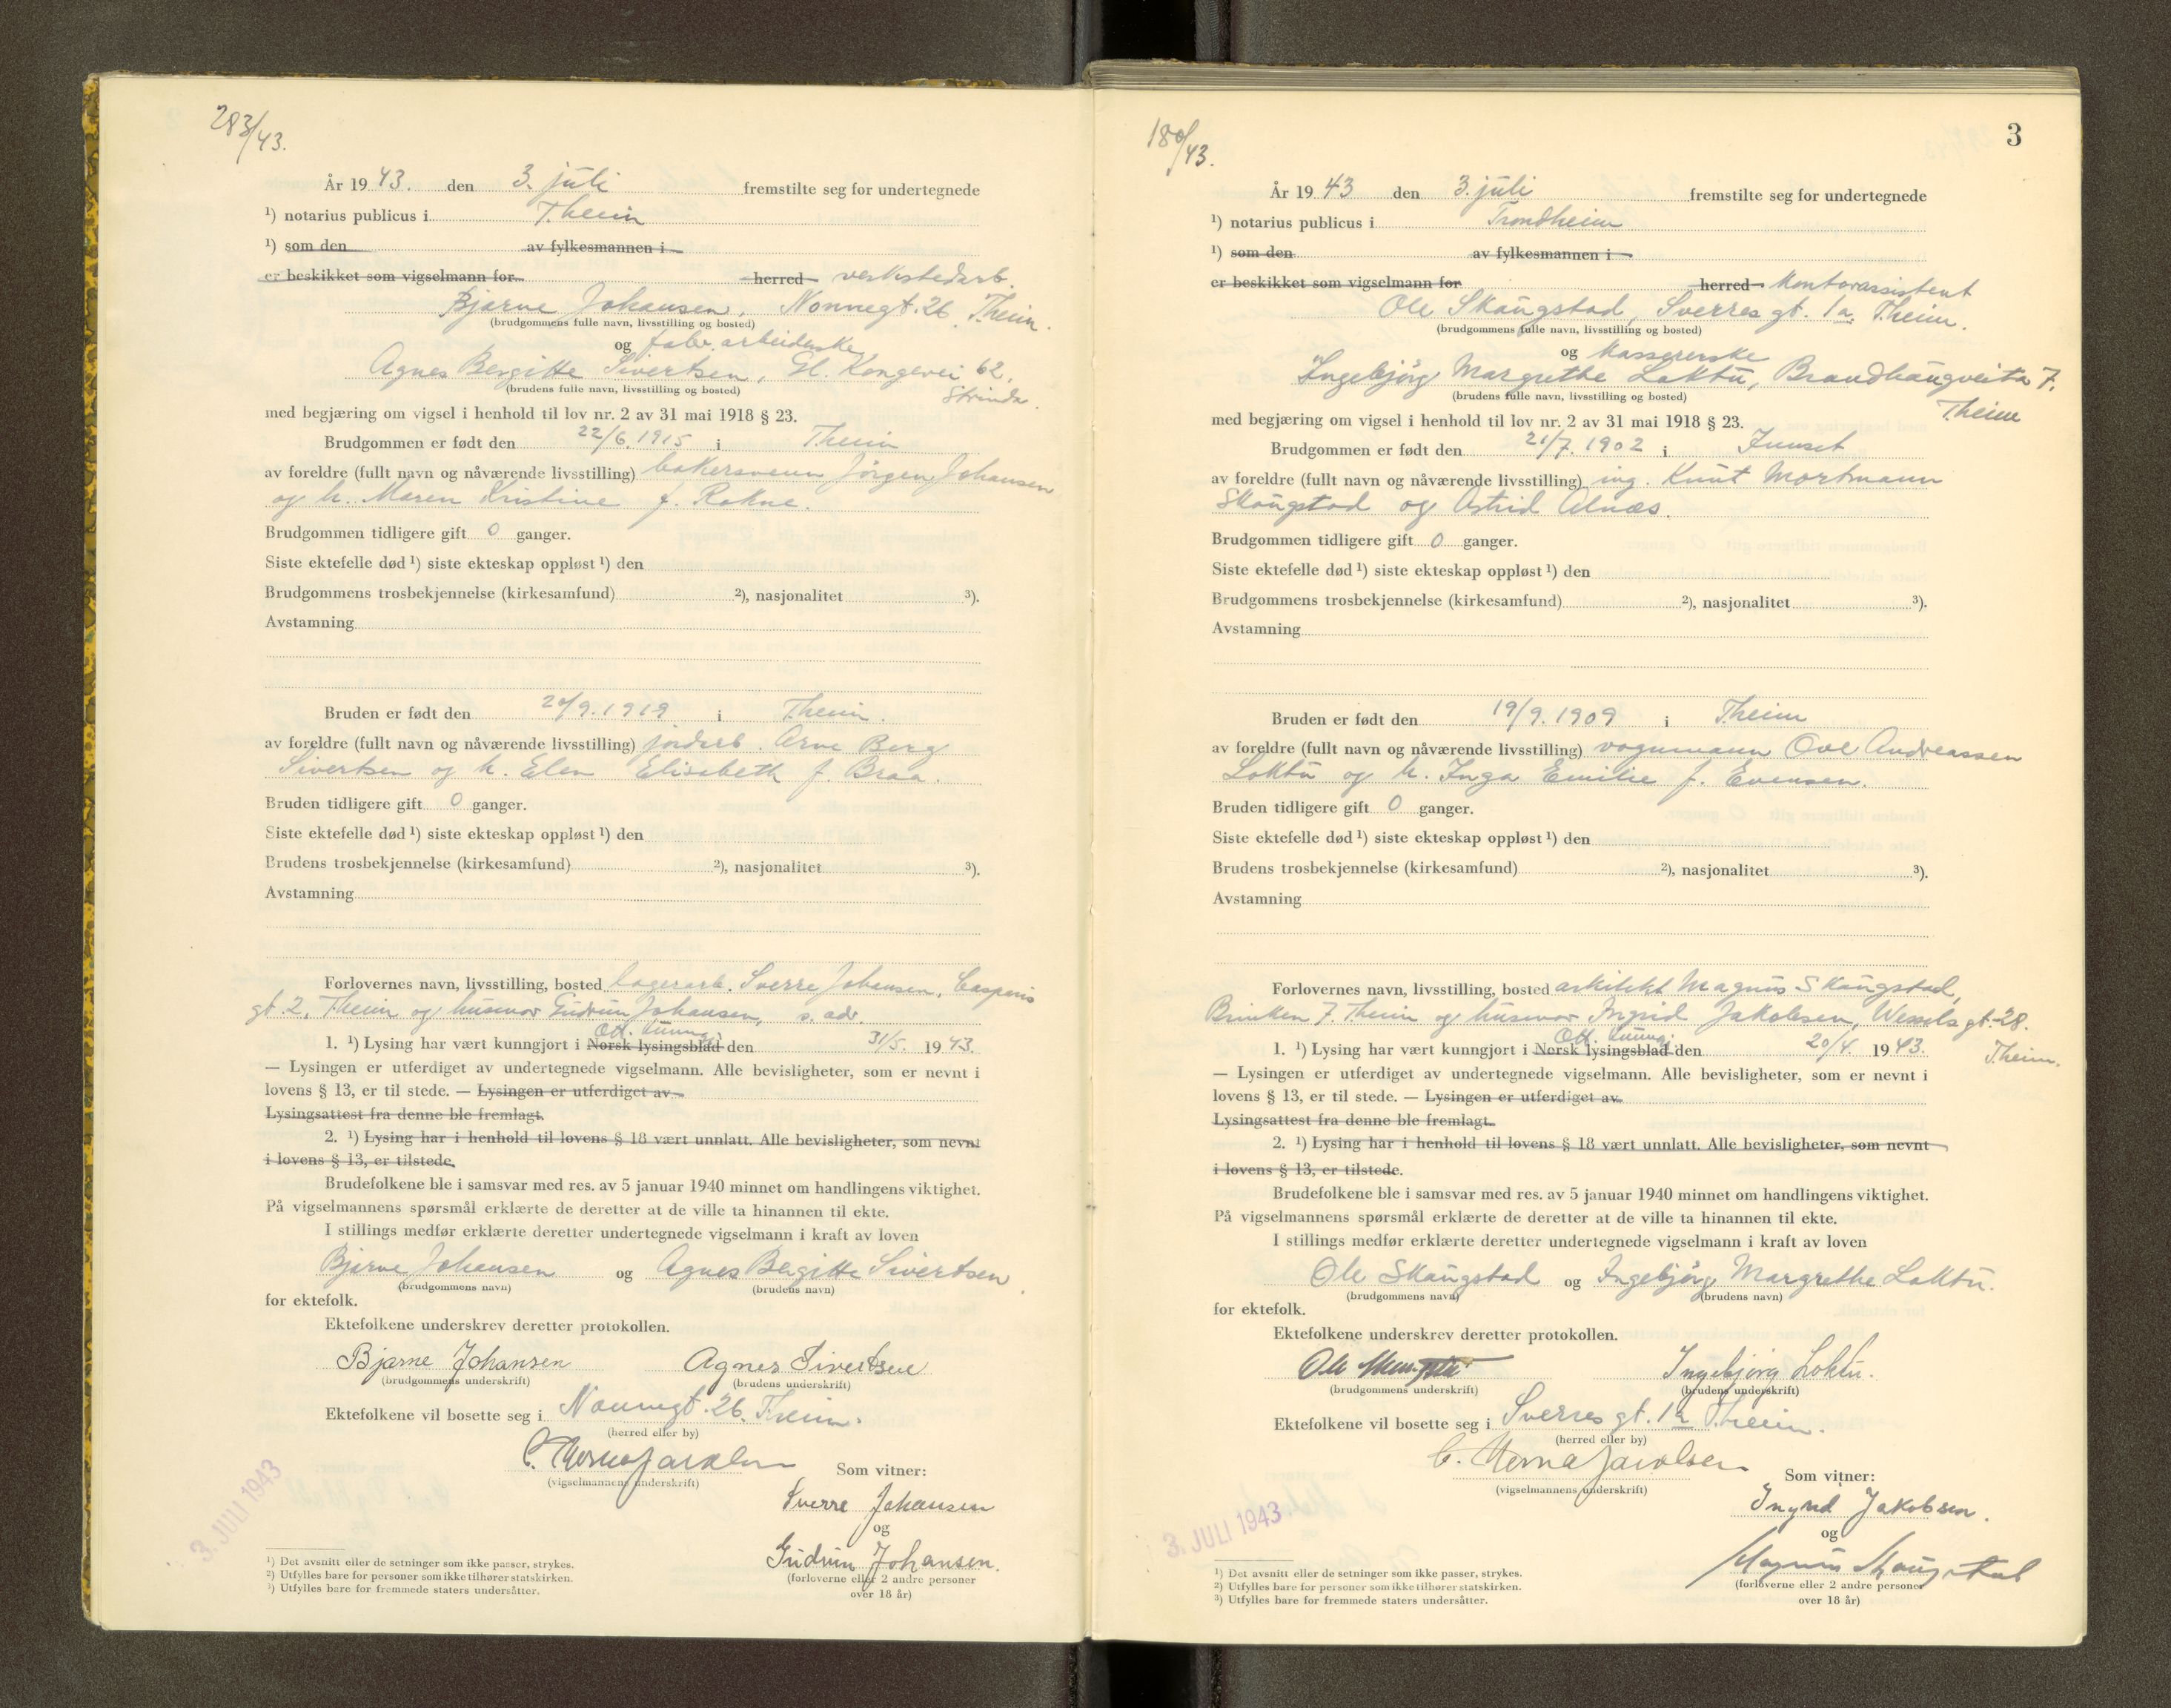 283/43.
År 19 43. den 3. juli fremstilte seg for undertegnede
¹) notarius publicus i T.heim
¹) som den av fylkesmannen i
er beskikket som vigselmann for herred verkstedarb.
Bjarne Johansen, Nonnegt. 26, T.heim.
(brudgommens fulle navn, livsstilling og bosted)
og fabr. arbeiderske
Agnes Bergitte Sivertsen, Gl. Kongevei 62,
(brudens fulle navn, livsstilling og bosted) Strinda.
med begjæring om vigsel i henhold til lov nr. 2 av 31 mai 1918 § 23.
Brudgommen er født den 22/6. 1915 i T.heim
av foreldre (fullt navn og nåværende livsstilling) bakersvenn Jørgen Johansen
og h. Maren Kristine f. Rokne.
Brudgommen tidligere gift 0 ganger.
Siste ektefelle død ¹) siste ekteskap oppløst ¹) den
Brudgommens trosbekjennelse (kirkesamfund) ²), nasjonalitet ³).
Avstamning
Bruden er født den 20/9. 1919 i T.heim.
av foreldre (fullt navn og nåværende livsstilling) jordarb. Arve Berg
Sivertsen og h. Elen Elisabeth f. Braa.
Bruden tidligere gift 0 ganger.
Siste ektefelle død ¹) siste ekteskap oppløst ¹) den
Brudens trosbekjennelse (kirkesamfund) ²), nasjonalitet ³).
Avstamning
Forlovernes navn, livsstilling, bosted lagerarb. Sverre Johansen, Casparis
gt. 2, T.heim og husmor Gudrun Johansen, s. adr.
Off. kunngj.
1. ¹) Lysing har vært kunngjort i Norsk lysingsblad den 31/5. 19 43.
— Lysingen er utferdiget av undertegnede vigselmann. Alle bevisligheter, som er nevnt i
lovens § 13, er til stede. — Lysingen er utferdiget av
Lysingsattest fra denne ble fremlagt.
2. ¹) Lysing har i henhold til lovens § 18 vært unnlatt. Alle bevisligheter, som nevnt
i lovens § 13, er tilstede.
Brudefolkene ble i samsvar med res. av 5 januar 1940 minnet om handlingens viktighet.
På vigselmannens spørsmål erklærte de deretter at de ville ta hinannen til ekte.
I stillings medfør erklærte deretter undertegnede vigselmann i kraft av loven
Bjarne Johansen og Agnes Bergitte Sivertsen
(brudgommens navn) (brudens navn)
for ektefolk.
Ektefolkene underskrev deretter protokollen.
Bjarne Johansen Agnes Sivertsen
(brudgommens underskrift) (brudens underskrift)
Ektefolkene vil bosette seg i Nonnegt. 26, T.heim.
(herred eller by)
(vigselmannens underskrift)
Som vitner:
Sverre Johansen
og
Gudrun Johansen.
(forloverne eller 2 andre personer
over 18 år)
3. JULI 1943
¹) Det avsnitt eller de setninger som ikke passer, strykes.
²) Utfylles bare for personer som ikke tilhører statskirken.
³) Utfylles bare for fremmede staters undersåtter.
180/43.
3
År 19 43 den 3. juli fremstilte seg for undertegnede
¹) notarius publicus i Trondheim
¹) som den av fylkesmannen i
er beskikket som vigselmann for herred kontorassistent
Ole Skaugstad, Sverres gt. 1a, T.heim.
(brudgommens fulle navn, livsstilling og bosted)
og kassererske
Ingebjørg Margrethe Loktu, Brandhaugveita 7.
(brudens fulle navn, livsstilling og bosted)
T.heim
med begjæring om vigsel i henhold til lov nr. 2 av 31 mai 1918 § 23.
Brudgommen er født den 21/7. 1902 i Innset
av foreldre (fullt navn og nåværende livsstilling) ing. Knut Mortmann
Skaugstad og Astrid Alnæs.
Brudgommen tidligere gift 0 ganger.
Siste ektefelle død ¹) siste ekteskap oppløst ¹) den
Brudgommens trosbekjennelse (kirkesamfund) ²), nasjonalitet ³).
Avstamning
Bruden er født den 19/9. 1909 i T.heim
av foreldre (fullt navn og nåværende livsstilling) vognmann Ove Andreassen
Loktu og h. Inga Emilie f. Evensen.
Bruden tidligere gift 0 ganger.
Siste ektefelle død ¹) siste ekteskap oppløst ¹) den
Brudens trosbekjennelse (kirkesamfund) ²), nasjonalitet ³).
Avstamning
Forlovernes navn, livsstilling, bosted arkitekt Magnus Skaugstad,
Brinken 7, T.heim og husmor Ingrid Jakobsen, Wessels gt. 28.
T.heim.
Off. kunngj.
1. ¹) Lysing har vært kunngjort i Norsk lysingsblad den 20/4. 19 43.
— Lysingen er utferdiget av undertegnede vigselmann. Alle bevisligheter, som er nevnt i
lovens § 13, er til stede. — Lysingen er utferdiget av
Lysingsattest fra denne ble fremlagt.
2. ¹) Lysing har i henhold til lovens § 18 vært unnlatt. Alle bevisligheter, som nevnt
i lovens § 13, er tilstede.
Brudefolkene ble i samsvar med res. av 5 januar 1940 minnet om handlingens viktighet.
På vigselmannens spørsmål erklærte de deretter at de ville ta hinannen til ekte.
I stillings medfør erklærte deretter undertegnede vigselmann i kraft av loven
Ole Skaugstad og Ingebjørg Margrethe Loktu.
(brudgommens navn) (brudens navn)
for ektefolk.
Ektefolkene underskrev deretter protokollen.
Ole Skaugstad Ingebjørg Loktu.
(brudgommens underskrift) (brudens underskrift)
Ektefolkene vil bosette seg i Sverres gt. 1a T.heim.
(herred eller by)
(vigselmannens underskrift)
Som vitner:
Ingrid Jakobsen.
og
Magnus Skaugstad
(forloverne eller 2 andre personer
over 18 år)
3. JULI 1943
¹) Det avsnitt eller de setninger som ikke passer, strykes.
²) Utfylles bare for personer som ikke tilhører statskirken.
³) Utfylles bare for fremmede staters undersåtter.